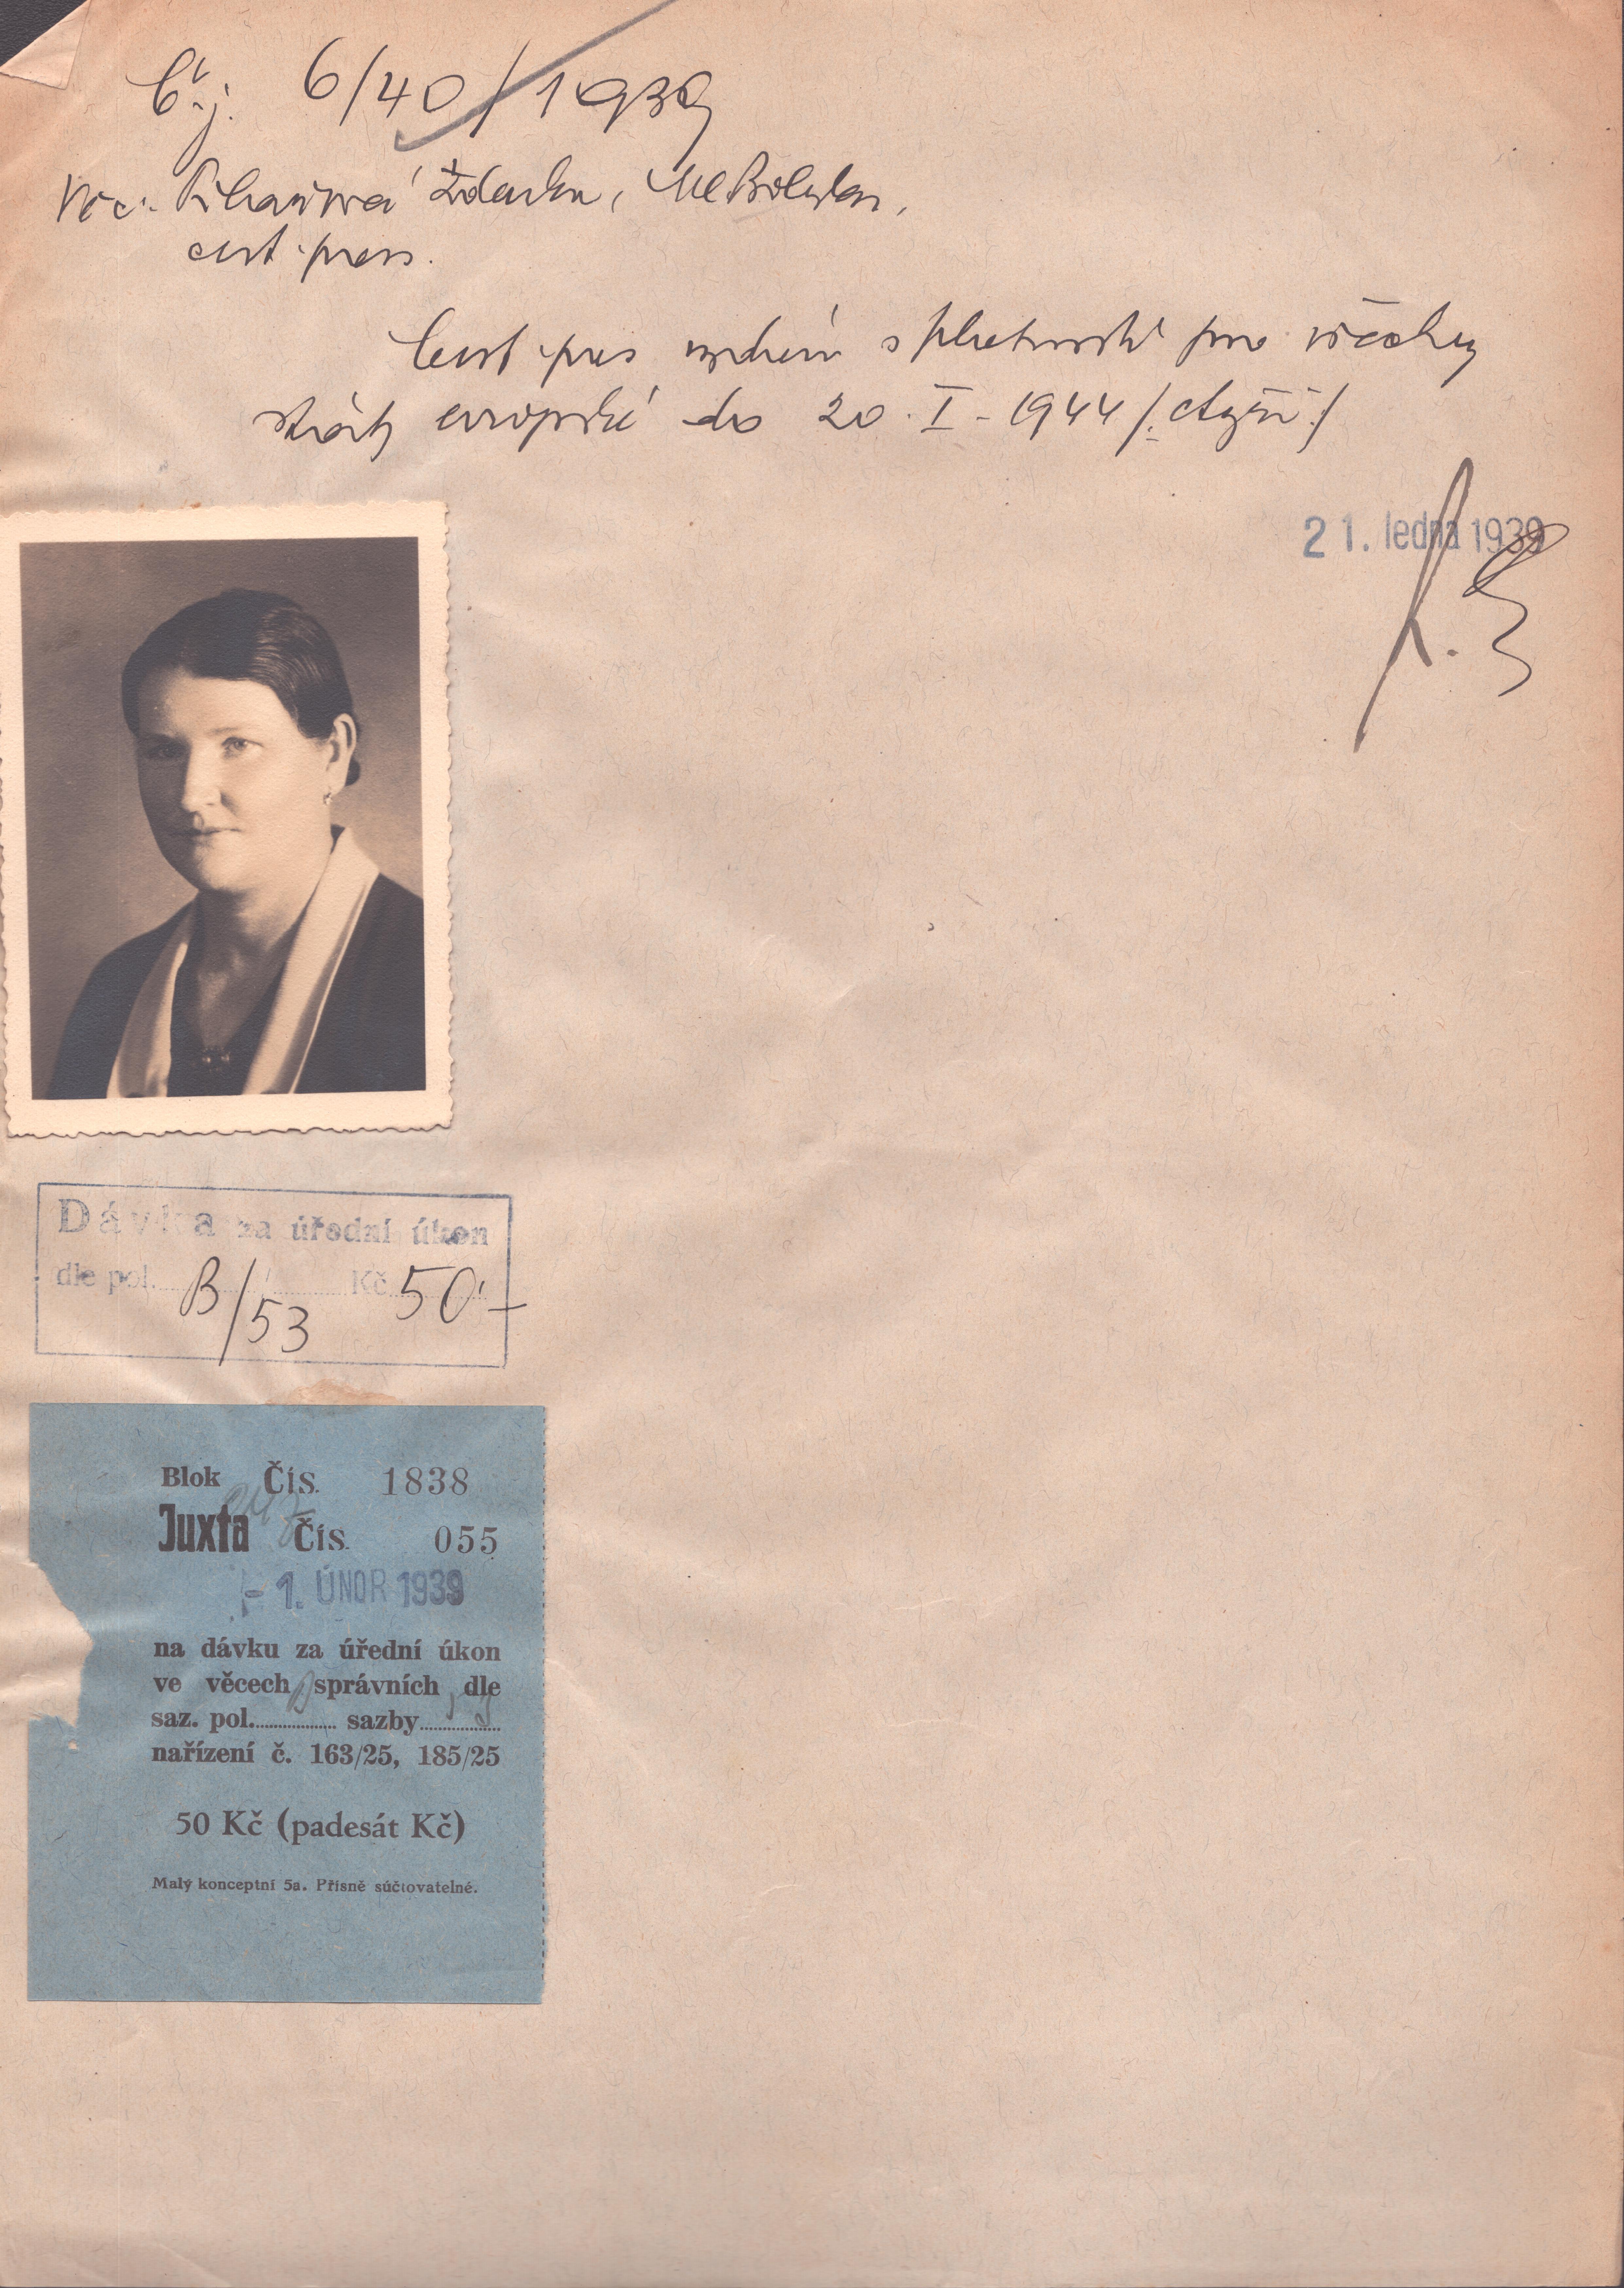 Č.j. 6/40/1939
Věc: Zdenka, Ml Boleslav,
cest. pas.
Cest. pas vydán s platností pro všechny
státy evropské do 20. I - 1944 /: čtyři :/
21. ledna 1939
Dávka za úřední úkon
dle pol. B/53 Kč 50'-
Blok Čís. 1838
Juxta Čís. 055
- 1. ÚNOR 1939
na dávku za úřední úkon
ve věcech správních, dle
saz. pol. B sazby
nařízení č. 163/25, 185/25
50 Kč (padesát Kč)
Malý konceptní 5a. Přísně súčtovatelné.